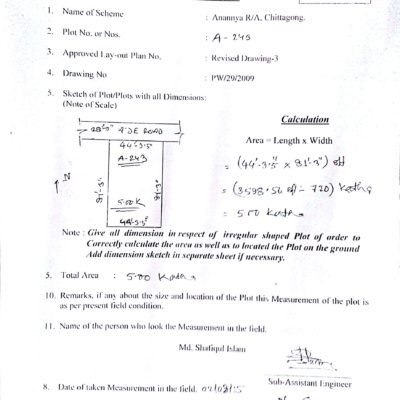 1. Name of Scheme : Anannya R/A, Chittagong.
2. Plot No. or Nos. : A - 243
3. Approved Lay-out Plan No. : Revised Drawing-3
4. Drawing No : PW/29/2009
5. Sketch of Plot/Plots with all Dimensions:
(Note of Scale)
Calculation
Area = Length x Width
WIDE ROAD
44'-3.5"
A-243
= (44'-3.5" x 81'-3") sft
N
81'-3"
81'-3"
= (3598.56 sft ÷ 720) Katha
5.00 K
= 5.00 Katha
44'-3.5"
Note : Give all dimension in respect of irregular shaped Plot of order to
Correctly calculate the area as well as to located the Plot on the ground
Add dimension sketch in separate sheet if necessary.
5. Total Area : 5.00 Katha
10. Remarks, if any about the size and location of the Plot this Measurement of the plot is
as per present field condition.
11. Name of the person who look the Measurement in the field.
Md. Shafiqul Islam
Sub-Assistant Engineer
8. Date of taken Measurement in the field.